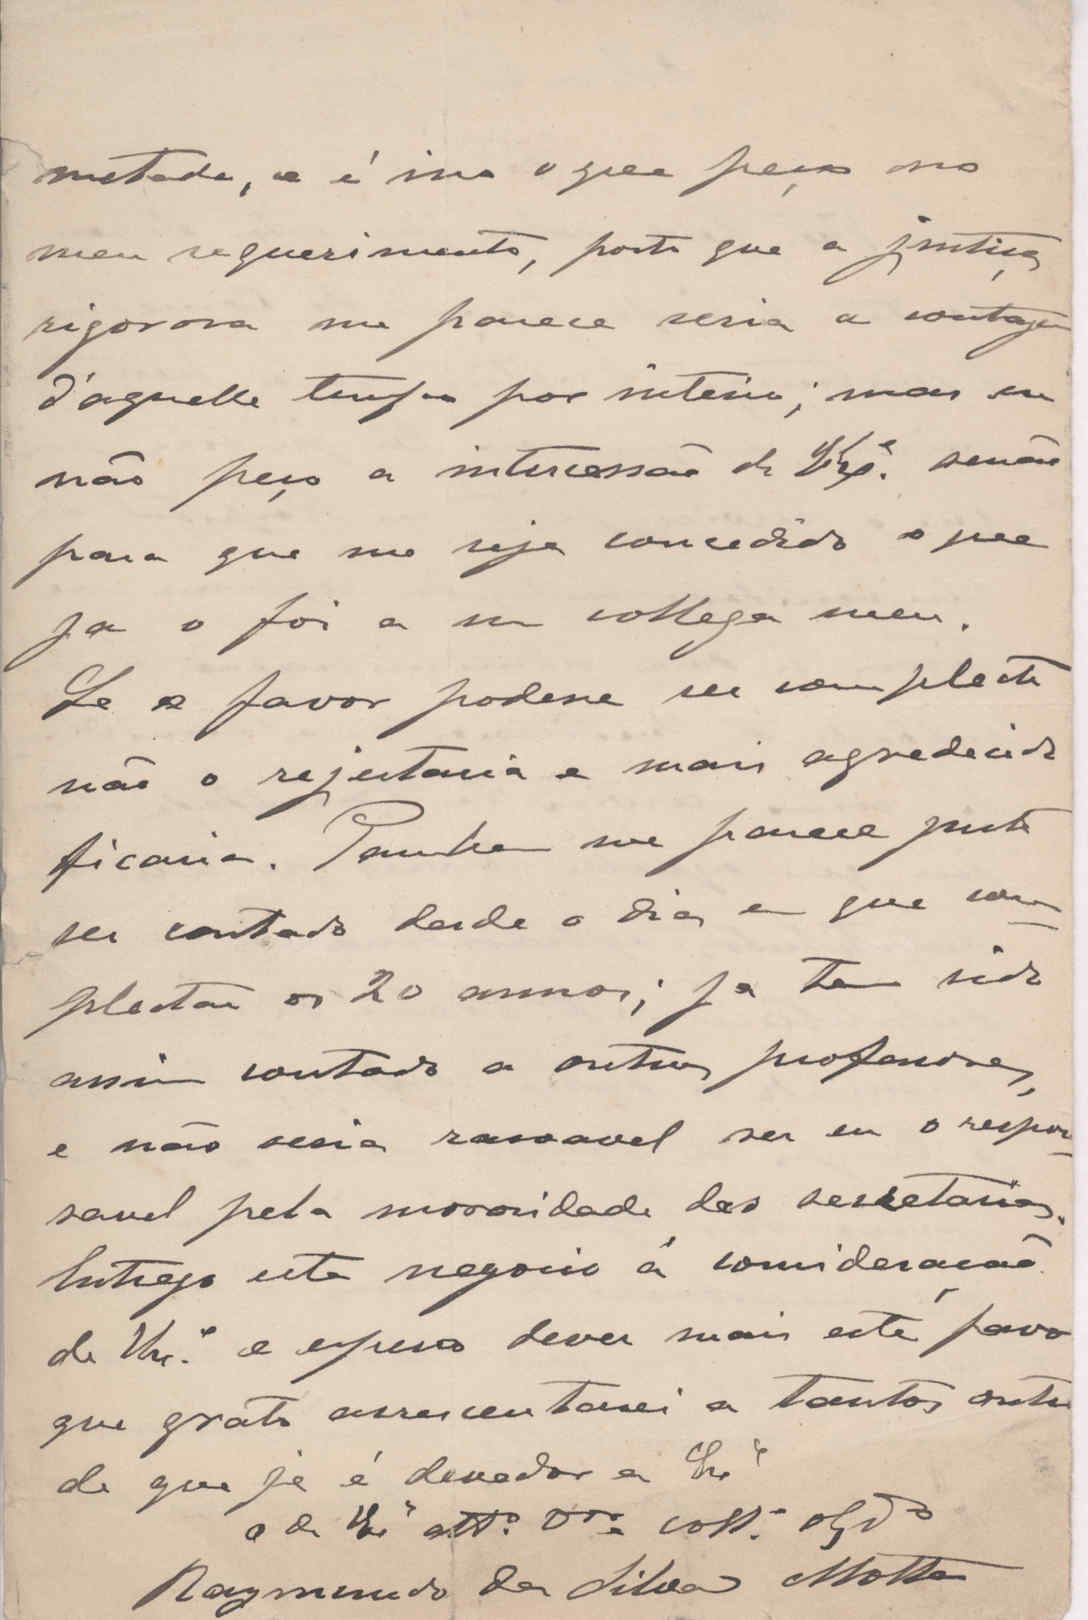 metade, e é isso o que peço no
meu requerimento, posto que a justiça
rigorosa me parece seria a contagem
d'aquelle tempo por inteiro; mas eu
não peço a intercessão de VEx.ª senão
para que me seja concedido o que
ja o foi a um collega meu.
Se o favor podesse ser completo
não o rejeitaria e mais agradecido
ficaria. Tambem me parece justo
ser contado desde o dia em que com-
pletar os 20 annos; ja tem sido
assim contado a outros professores,
e não seria rasoavel ser eu o respon-
savel pela morosidade das secretarias.
Entrego este negocio á consideração
de VEx.ª e espero dever mais este favor
que grato accrescentarei a tantos outros
de que já é devedor a VEx.ª
o de VEx.ª att.º collª obgdo
Raymundo da Silva Motta